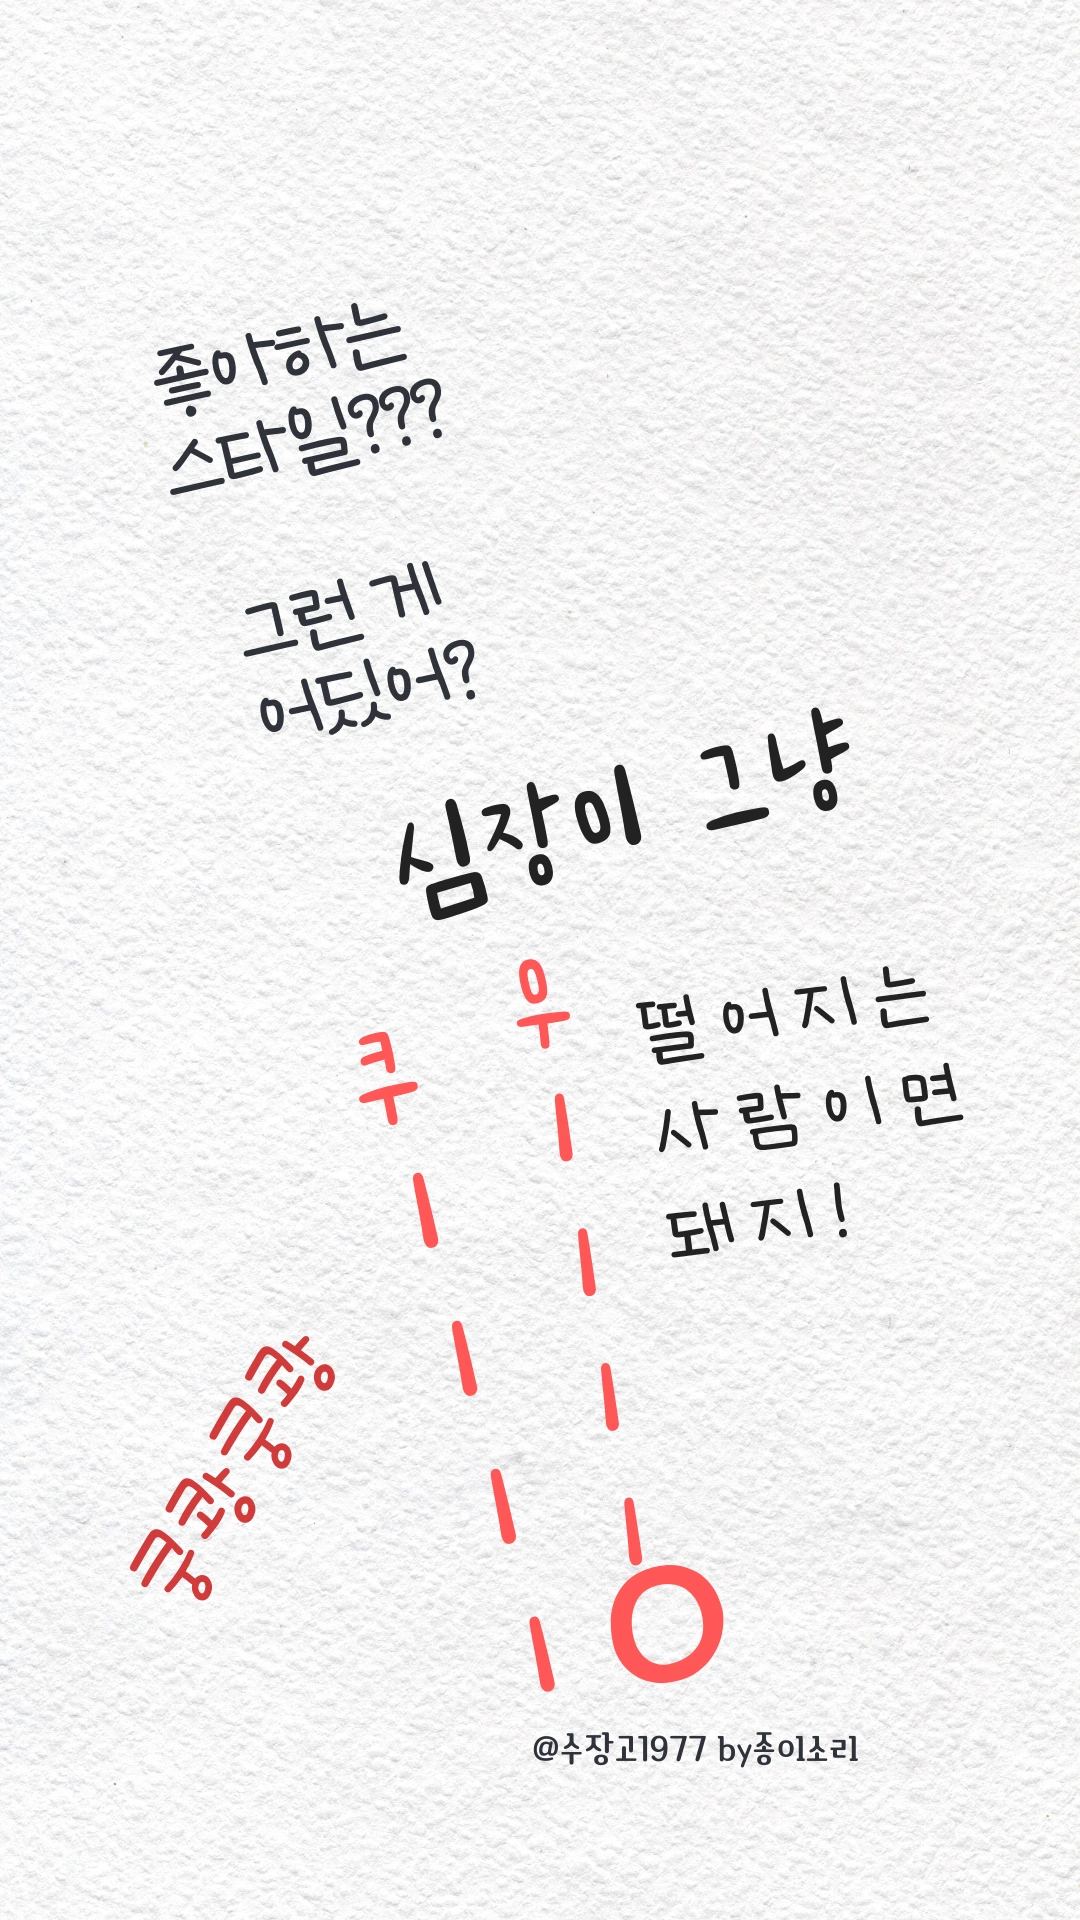 좋아하는
스타일???
그런 게
어딨어?
심장이 그냥
쿠우
ㅣㅣ
ㅣㅣ
ㅣㅣ
ㅣㅣ
ㅣㅇ
떨어지는
사람이면
돼지!
쿵쾅쿵쾅
@수장고1977 by종이소리